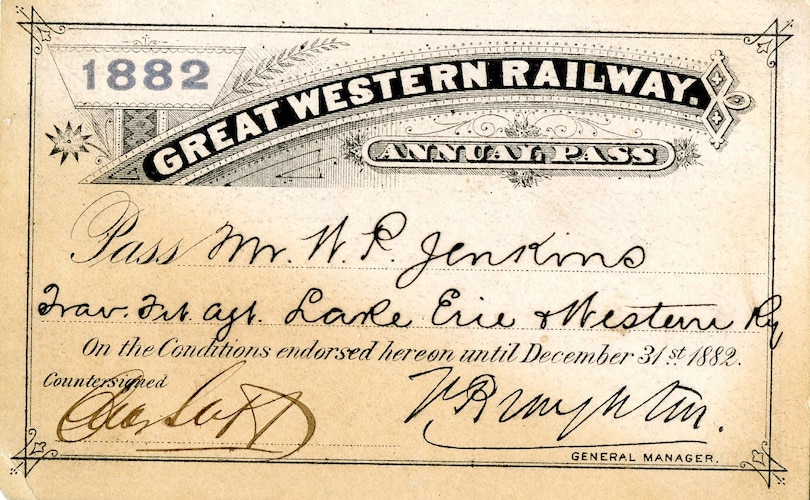 1882
GREAT WESTERN RAILWAY.
ANNUAL PASS
Pass Mr. W. P. Jenkins
Trav. Frt. Agt. Lake Erie & Western Ry
On the Conditions endorsed hereon until December 31st 1882.
Countersigned
F. Broughton.
GENERAL MANAGER.